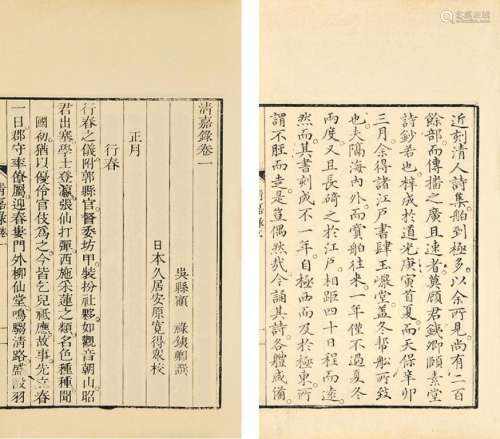 近刻清人詩集舶到極多以余所見尚有二百
餘部而傳播之廣且速者莫顧君鐵卿頤素堂
詩鈔若也梓成於道光庚寅首夏而天保辛卯
三月余得諸江戶書肆玉巖堂蓋冬幫船所致
也夫隔海內外而賈舶往來一年僅不過夏冬
兩度又且長碕之於江戶相距四十日程而遠
然而其書刻成不一年自極西而及於極東所
謂不脛而走是豈偶然哉今誦其詩各體咸備
清嘉錄
清嘉錄卷一
吳縣顧 祿鐵卿譔
日本久居安原寬得眾校
正月
行春
行春之儀附郭縣官督委坊甲裝扮社夥如觀音朝山昭
君出塞學士登瀛張仙打彈西施采蓮之類名色種種聞
國初猶以優伶官伎為之今皆乞兒祗應故事先立春
一日郡守率僚屬迎春婁門外柳仙堂鳴騶清路盛設羽
清嘉錄卷一